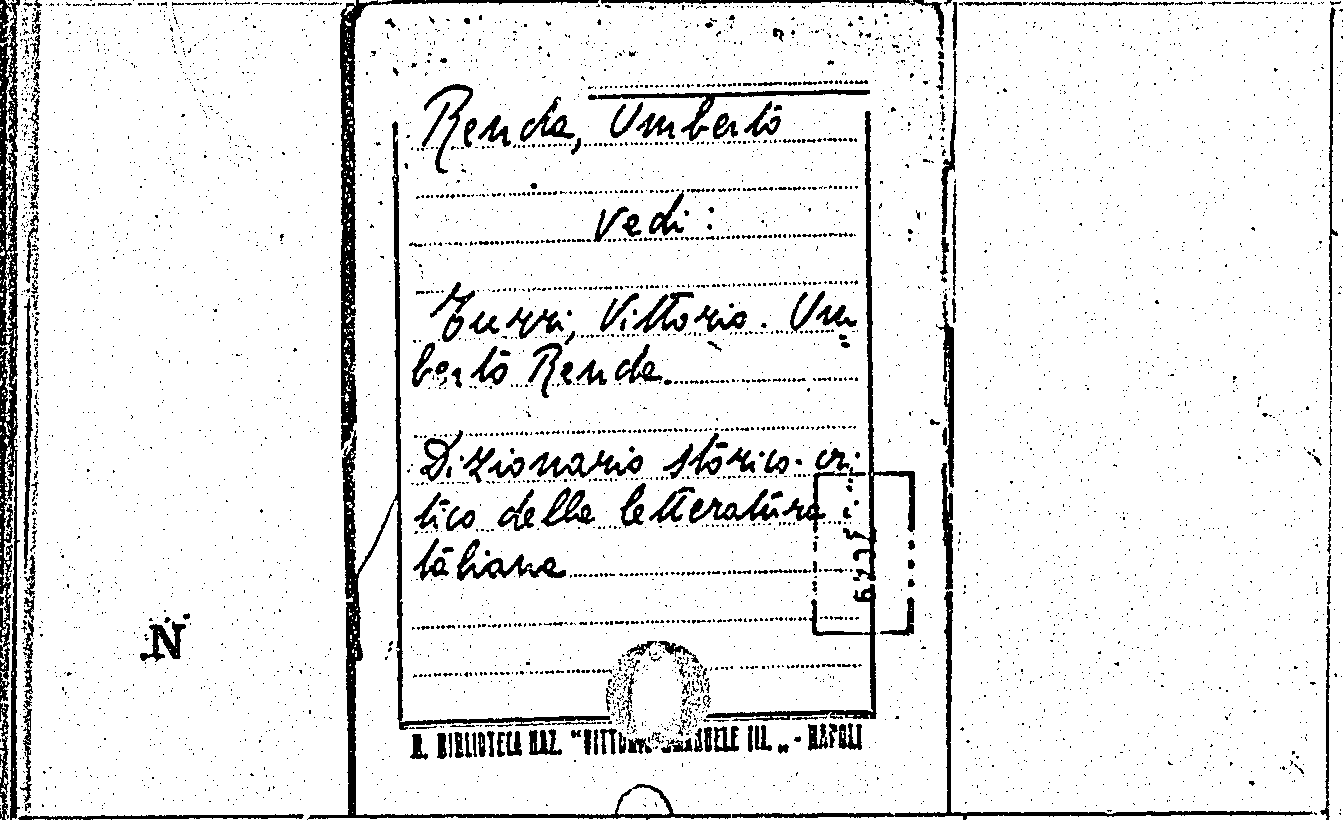 Renda, Umberto
Vedi:
Turri, Vittorio. Um
berto Renda.
Dizionario storico-cri
tico della letteratura i
taliana
N
R. BIBLIOTECA NAZ. "VITTORIO EMANUELE III. „ - NAPOLI